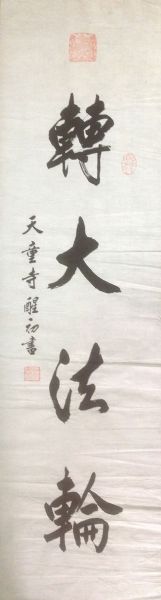 轉大法輪
天童寺醒初書